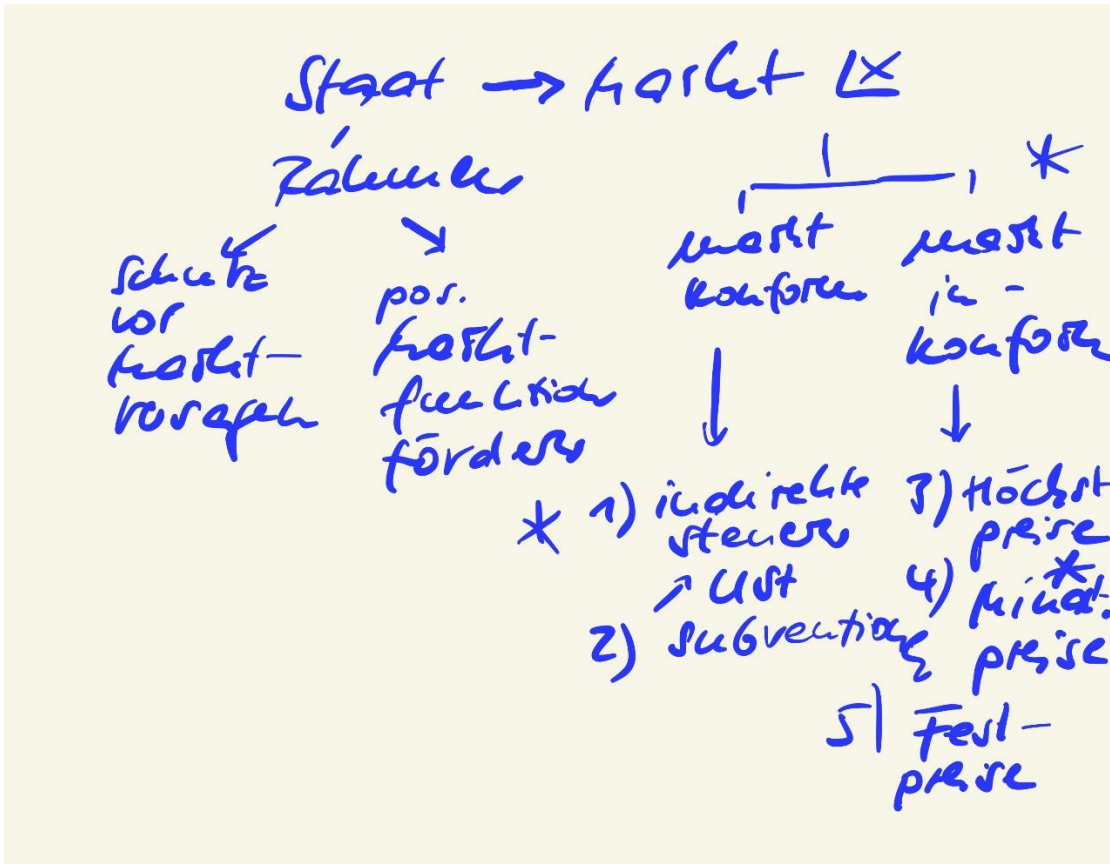 Staat → Markt
Rahmen
Schutz
vor
Markt-
versagen
pos.
Markt-
funktion
fördern
*
markt
konform
markt
in-
konform
* 1) indirekte
steuern
↗ USt
2) subventionen
3) Höchst
preise
*
4) Mindest.
preise
5) Fest-
preise